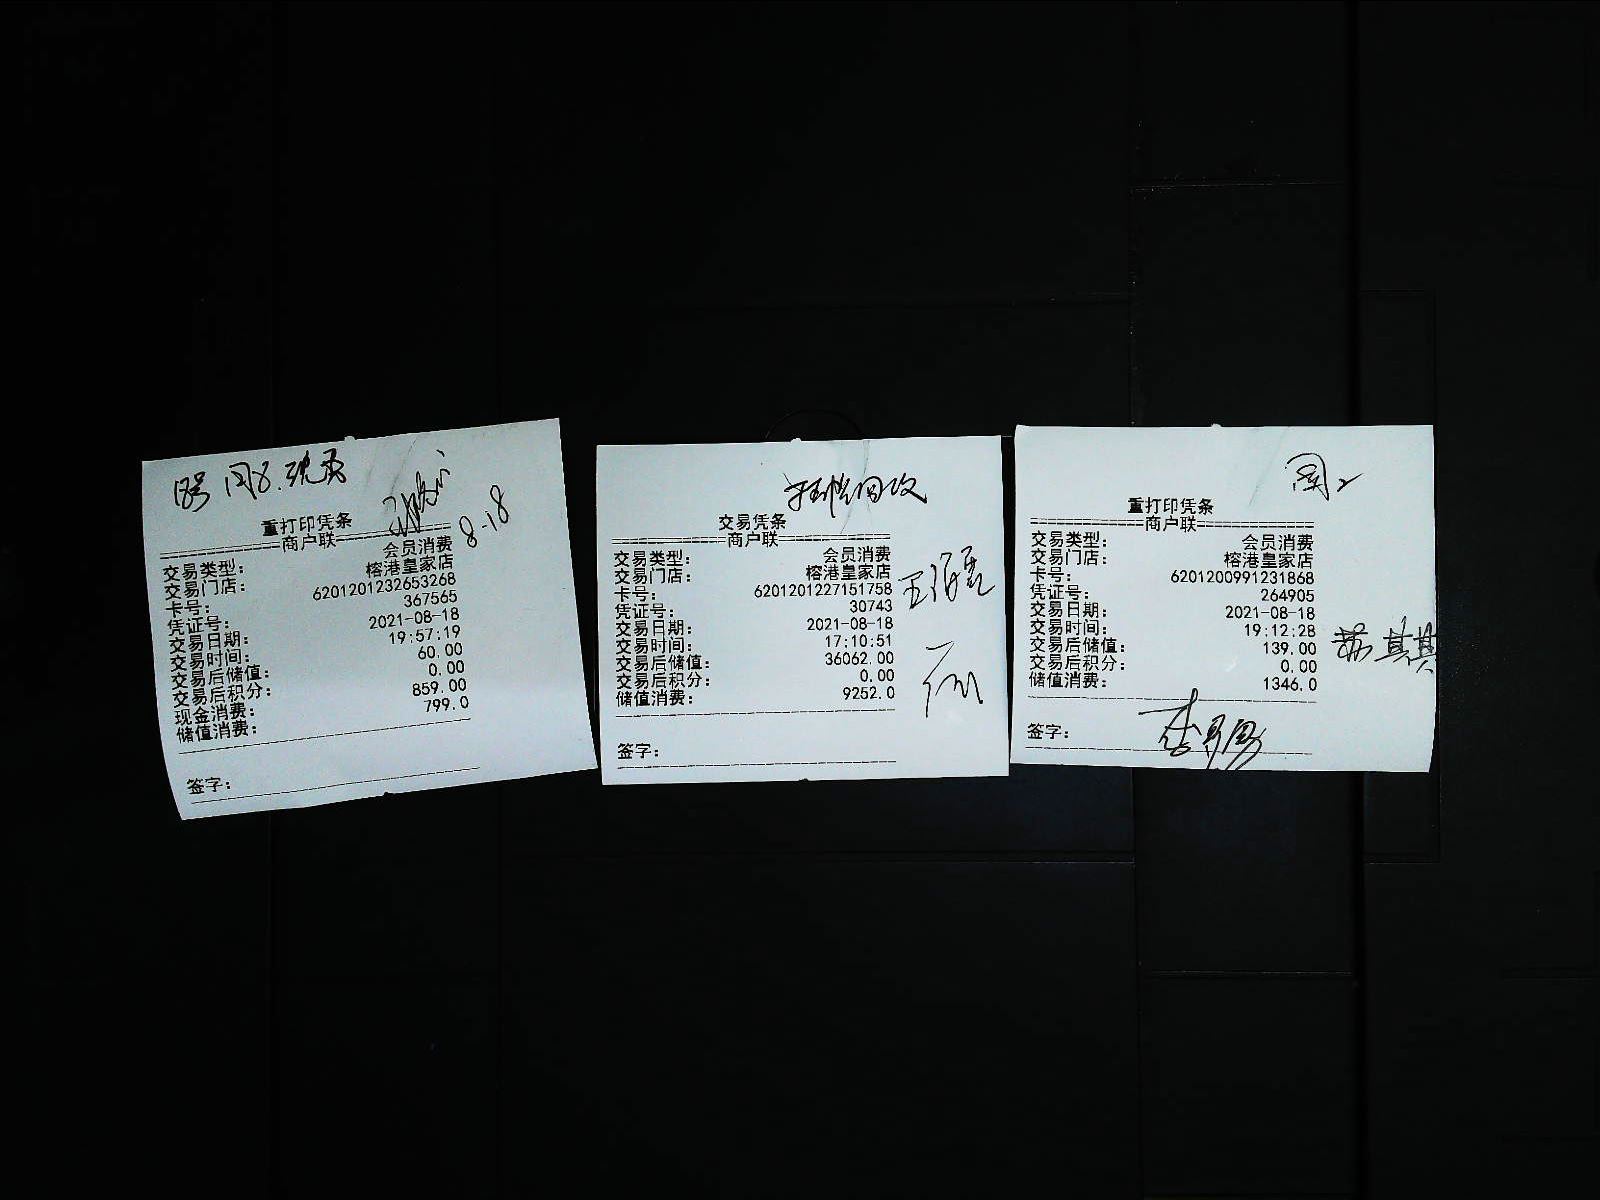 8-18
重打印凭条
============商户联============
交易类型： 会员消费
交易门店： 榕港皇家店
卡号： 6201201232653268
凭证号： 367565
交易日期： 2021-08-18
交易时间： 19:57:19
交易后储值： 60.00
交易后积分： 0.00
现金消费： 859.00
储值消费： 799.0
签字：
交易凭条
============商户联============
交易类型： 会员消费
交易门店： 榕港皇家店
卡号： 6201201227151758
凭证号： 30743
交易日期： 2021-08-18
交易时间： 17:10:51
交易后储值： 36062.00
交易后积分： 0.00
储值消费： 9252.0
签字：
重打印凭条
============商户联============
交易类型： 会员消费
交易门店： 榕港皇家店
卡号： 6201200991231868
凭证号： 264905
交易日期： 2021-08-18
交易时间： 19:12:28
交易后储值： 139.00
交易后积分： 0.00
储值消费： 1346.0
签字：